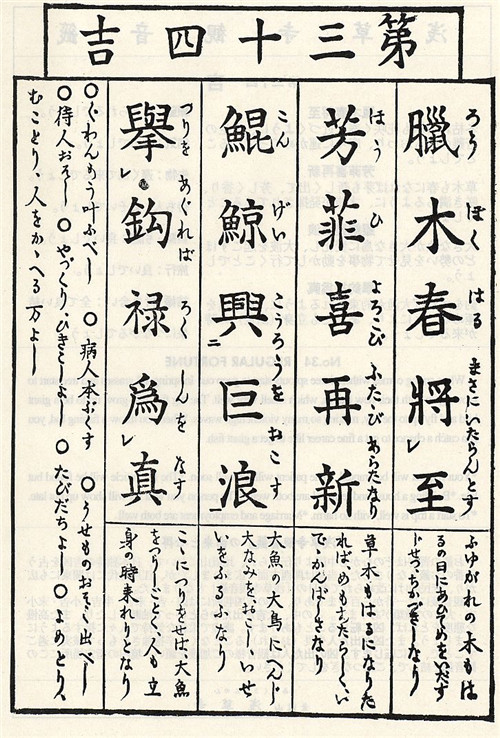 第三十四吉
臘木春將レ至
ろう ぼく はる まさにいたらんとす
ふゆがれの木もは
るの日にあひてめをいだす
じせつちかづきしなり
芳菲喜再新
はう ひ よろこび ふたゝび あらたなり
草木もはるになりた
れば、めもあたらしくい
でゝかんばしきなり
鯤鯨興二巨浪一
こん げい こうろうを おこす
大魚の大鳥にへんじ
大なみをおこしいせ
いをふるふなり
擧レ鈎禄爲レ真
つりを あぐれば ろく しんを なす
こゝにつりをせば、大魚
をつらんごとく人も立
身の時来れしなり
○ぐわんもう叶ふべし ○病人本ぷくす ○うせものおそく出べし
○待人おそし ○やづくり、ひきこし ○たびだちよし ○よめとり、
むことり、人をかゝへる万よし